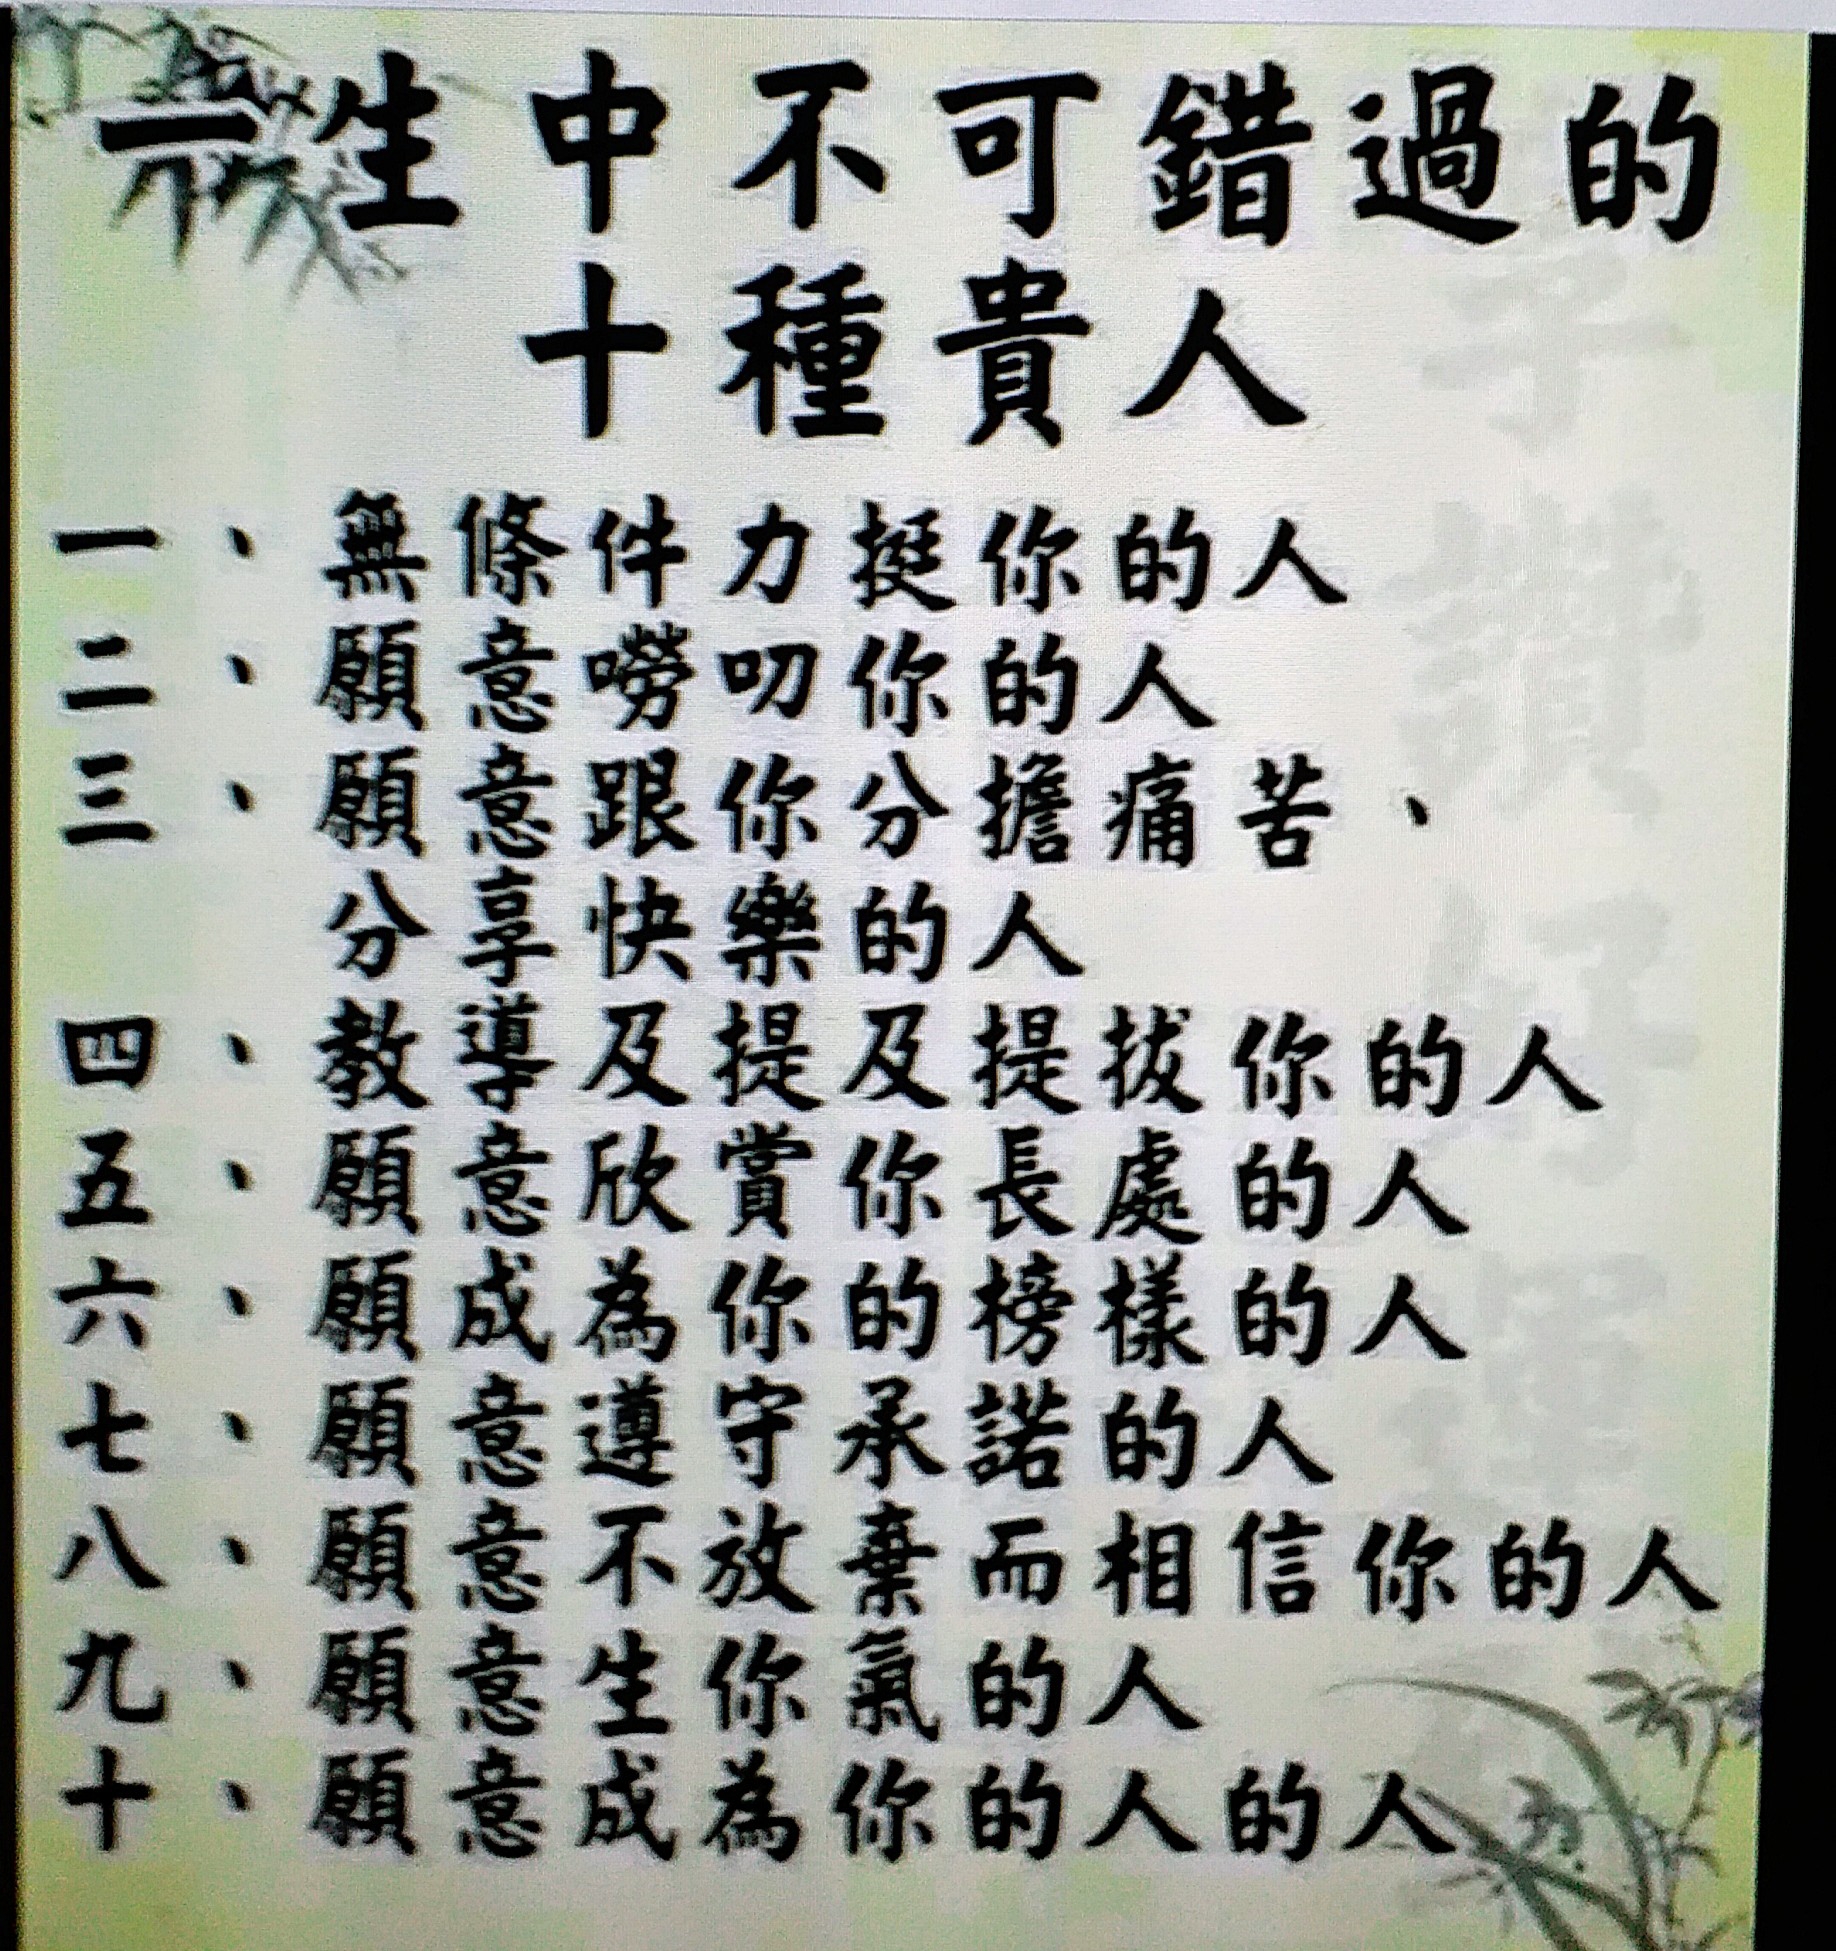 一生中不可錯過的
十種貴人
一、無條件力挺你的人
二、願意嘮叨你的人
三、願意跟你分擔痛苦、
分享快樂的人
四、教導及提及提拔你的人
五、願意欣賞你長處的人
六、願成為你的榜樣的人
七、願意遵守承諾的人
八、願意不放棄而相信你的人
九、願意生你氣的人
十、願意成為你的人的人